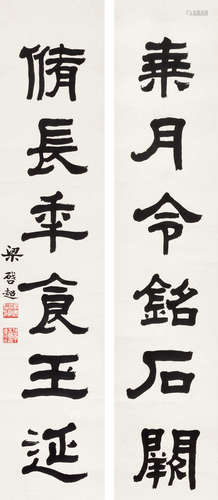 乘月令銘石闕
脩長年食玉延
梁啓超